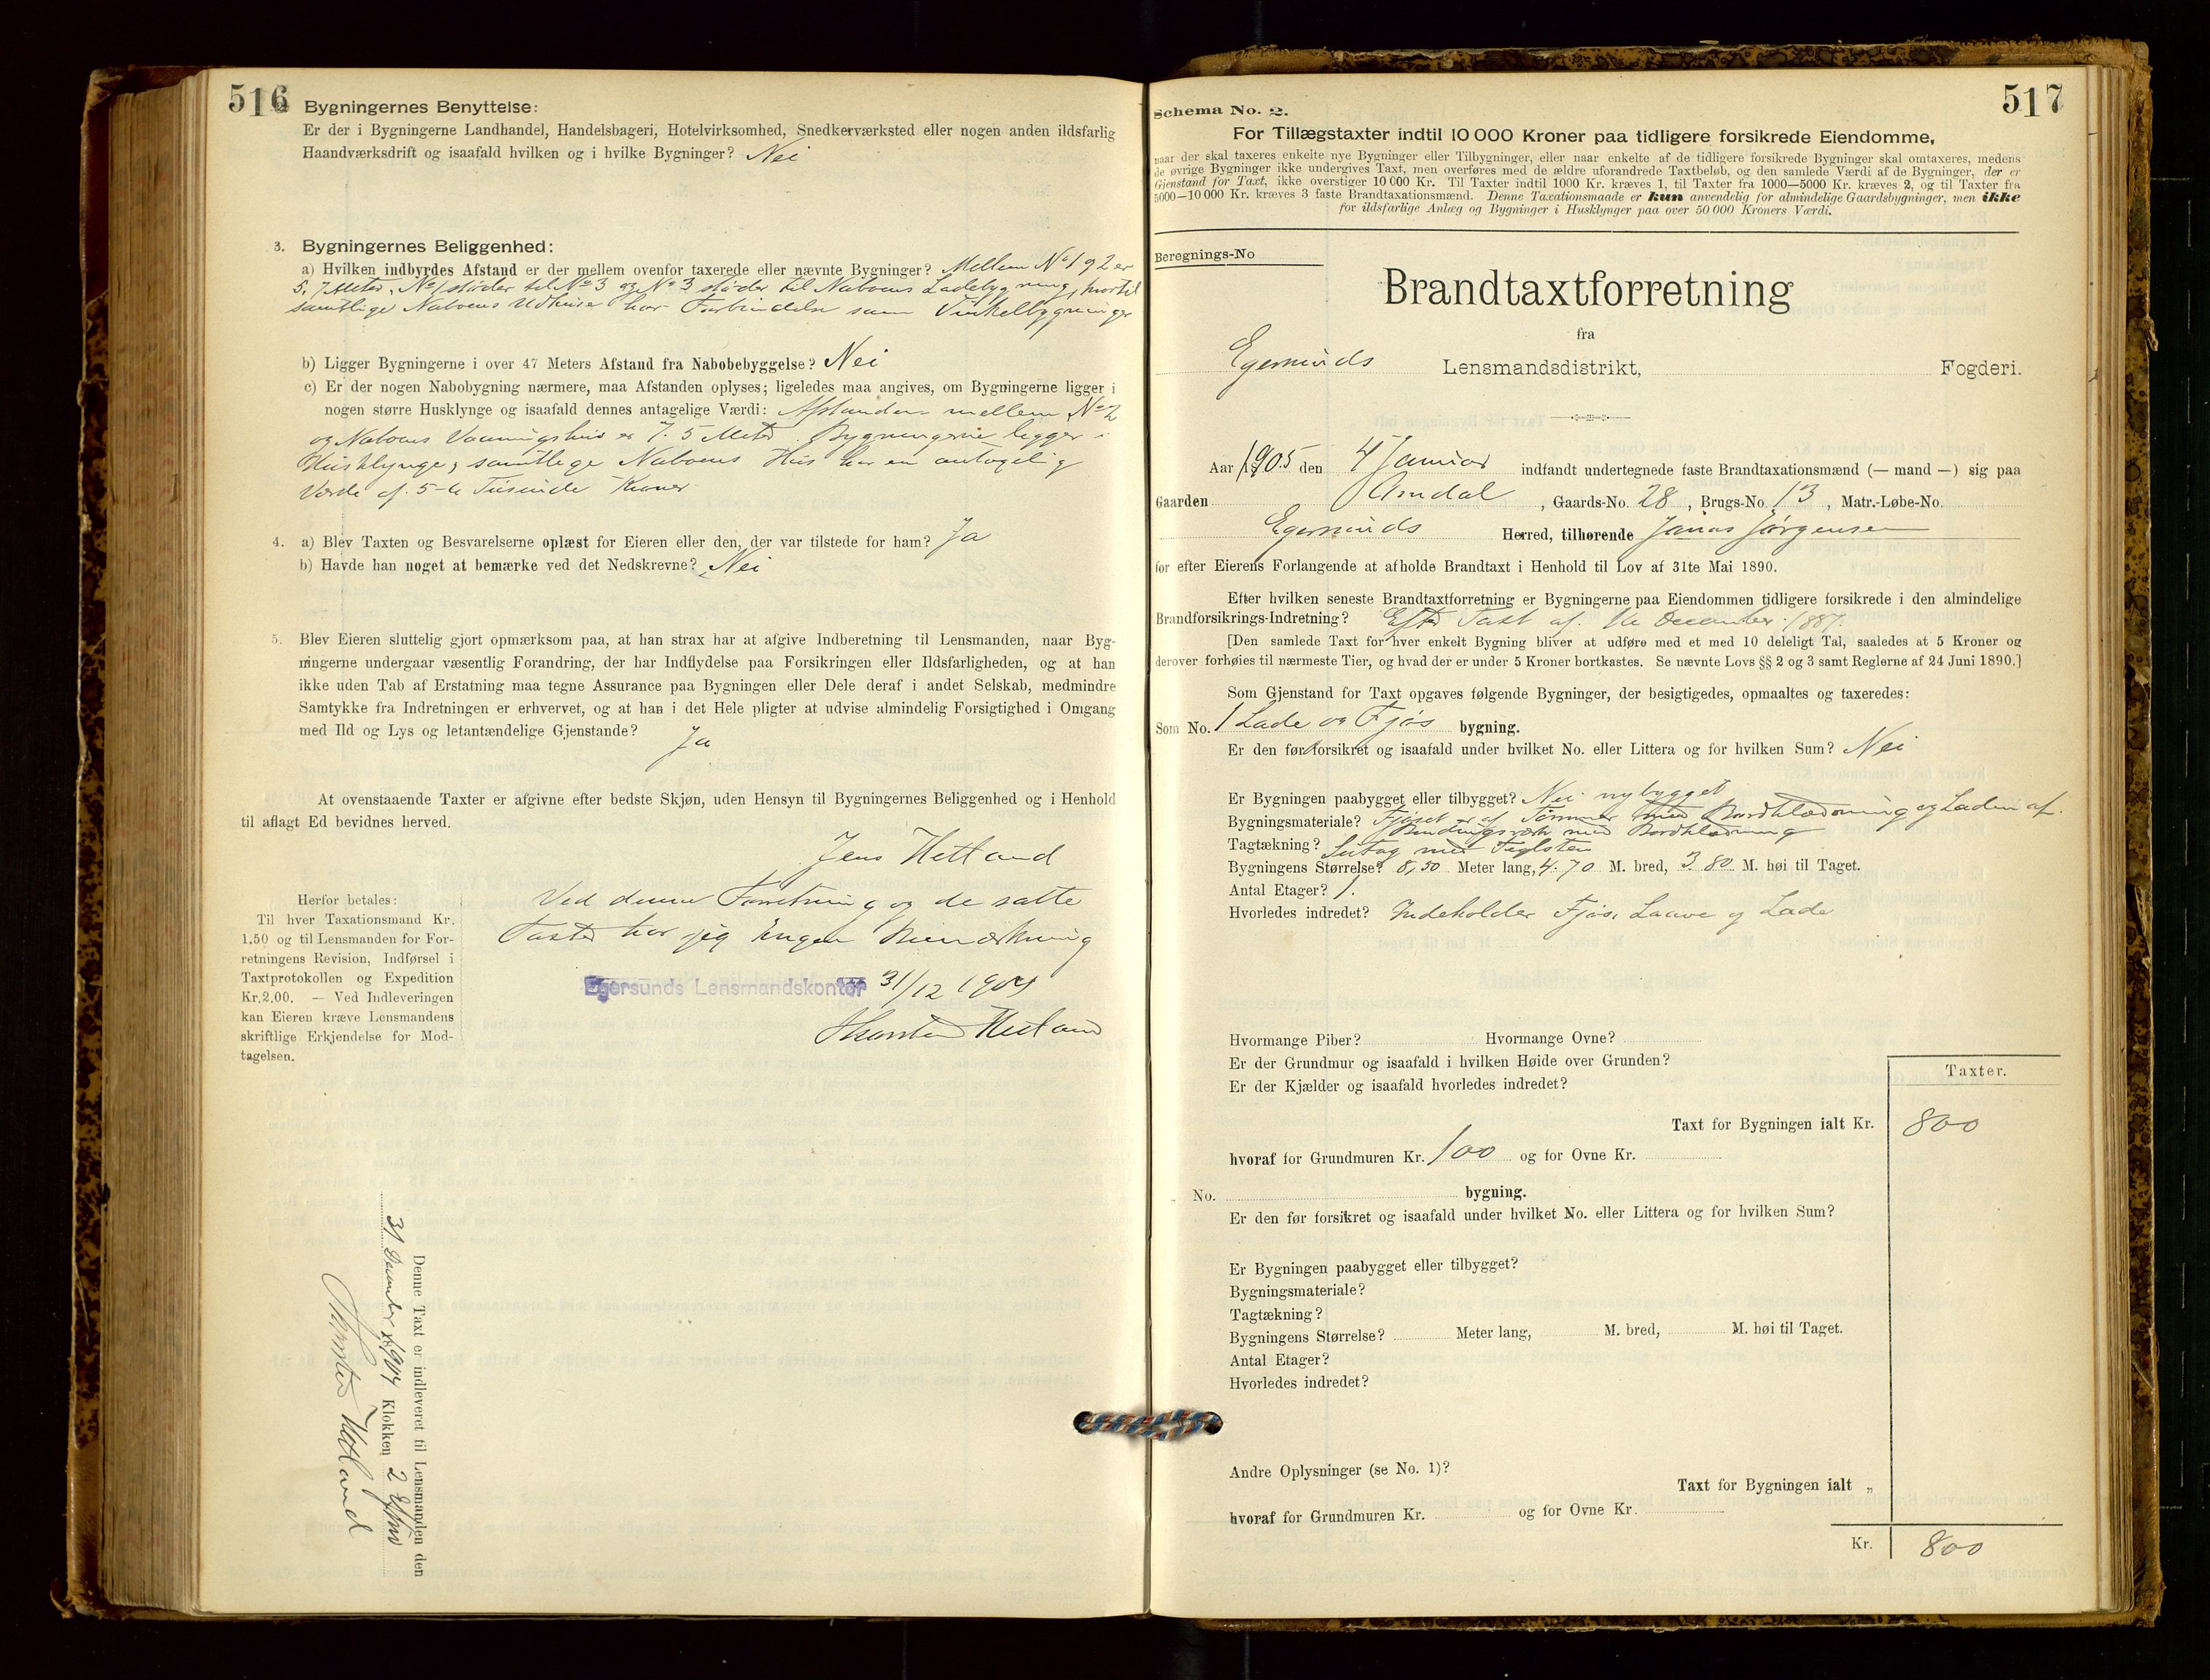 516
Bygningernes Benyttelse:
Er der i Bygningerne Landhandel, Handelsbageri, Hotelvirksomhed, Snedkerværksted eller nogen anden ildsfarlig
Haandværksdrift og isaafald hvilken og i hvilke Bygninger? Nei
3. Bygningernes Beliggenhed:
a) Hvilken indbyrdes Afstand er der mellem ovenfor taxerede eller nævnte Bygninger? Mellem No 1 og 2 er
5,7 Meter. No 1 støder til No 3 og No 3 støder til Naboens Ladebygning, hvortil
samtlige Naboens Udhuse har Forbindelse som Vinkelbygninger
b) Ligger Bygningerne i over 47 Meters Afstand fra Nabobebyggelse? Nei
c) Er der nogen Nabobygning nærmere, maa Afstanden oplyses; ligeledes maa angives, om Bygningerne ligger i
nogen større Husklynge og isaafald dennes antagelige Værdi: Afstanden mellem No 2
og Naboens Vaaningshus er 7.5 Meter. Bygningerne ligger i
Husklynge, samtlige Naboens Hus har en antagelig
Værde af 5-6 Tusinde Kroner
4. a) Blev Taxten og Besvarelserne oplæst for Eieren eller den, der var tilstede for ham? Ja
b) Havde han noget at bemærke ved det Nedskrevne? Nei
5. Blev Eieren sluttelig gjort opmærksom paa, at han strax har at afgive Indberetning til Lensmanden, naar Byg-
ningerne undergaar væsentlig Forandring, der har Indflydelse paa Forsikringen eller Ildsfarligheden, og at han
ikke uden Tab af Erstatning maa tegne Assurance paa Bygningen eller Dele deraf i andet Selskab, medmindre
Samtykke fra Indretningen er erhvervet, og at han i det Hele pligter at udvise almindelig Forsigtighed i Omgang
med Ild og Lys og letantændelige Gjenstande? Ja
At ovenstaaende Taxter er afgivne efter bedste Skjøn, uden Hensyn til Bygningernes Beliggenhed og i Henhold
til aflagt Ed bevidnes herved.
Jens Hetland
Ved denne Forretning og de satte
Taxter har jeg Ingen Bemærkning
Egersunds Lensmandskontor 31/12 1904
Hetland
Herfor betales:
Til hver Taxationsmand Kr.
1.50 og til Lensmanden for For-
retningens Revision, Indførsel i
Taxtprotokollen og Expedition
Kr.2.00. — Ved Indleveringen
kan Eieren kræve Lensmandens
skriftlige Erkjendelse for Mod-
tagelsen.
Denne Taxt er indleveret til Lensmanden den
31 December 1904 Klokken 2 Efm
Hetland
517
Schema No. 2.
For Tillægstaxter indtil 10 000 Kroner paa tidligere forsikrede Eiendomme,
naar der skal taxeres enkelte nye Bygninger eller Tilbygninger, eller naar enkelte af de tidligere forsikrede Bygninger skal omtaxeres, medens
de øvrige Bygninger ikke undergives Taxt, men overføres med de ældre uforandrede Taxtbeløb, og den samlede Værdi af de Bygninger, der er
Gjenstand for Taxt, ikke overstiger 10 000 Kr. Til Taxter indtil 1000 Kr. kræves 1, til Taxter fra 1000—5000 Kr. kræves 2, og til Taxter fra
5000—10 000 Kr. kræves 3 faste Brandtaxationsmænd. Denne Taxationsmaade er kun anvendelig for almindelige Gaardsbygninger, men ikke
for ildsfarlige Anlæg og Bygninger i Husklynger paa over 50 000 Kroners Værdi.
Beregnings-No
Brandtaxtforretning
fra
Egersunds Lensmandsdistrikt, Fogderi.
Aar 1905 den 4 Januar indfandt undertegnede faste Brandtaxationsmænd (— mand —) sig paa
Gaarden Omdal, Gaards-No. 28, Brugs-No. 13, Matr.-Løbe-No.
Egersunds Herred, tilhørende Jonas Jørgensen
for efter Eierens Forlangende at afholde Brandtaxt i Henhold til Lov af 31te Mai 1890.
Efter hvilken seneste Brandtaxtforretning er Bygningerne paa Eiendommen tidligere forsikrede i den almindelige
Brandforsikrings-Indretning? Efter Taxt af December 1887.
[Den samlede Taxt for hver enkelt Bygning bliver at udføre med et med 10 deleligt Tal, saaledes at 5 Kroner og
derover forhøies til nærmeste Tier, og hvad der er under 5 Kroner bortkastes. Se nævnte Lovs §§ 2 og 3 samt Reglerne af 24 Juni 1890.]
Som Gjenstand for Taxt opgaves følgende Bygninger, der besigtigedes, opmaaltes og taxeredes:
Som No. 1 Lade og Fjøs bygning.
Er den før forsikret og isaafald under hvilket No. eller Littera og for hvilken Sum? Nei
Er Bygningen paabygget eller tilbygget? Nei nybygget
Bygningsmateriale? Fjøset er af Tømmer med Bordklædning og Laden af
Bindingsværk med Bordklædning
Tagtækning? Sutag med Teglsten
Bygningens Størrelse? 8,50 Meter lang, 4.70 M. bred, 3.80 M. høi til Taget.
Antal Etager? 1.
Hvorledes indredet? Indeholder Fjøs, Laave og Lade
Hvormange Piber? Hvormange Ovne?
Er der Grundmur og isaafald i hvilken Høide over Grunden?
Er der Kjælder og isaafald hvorledes indredet?
Taxter.
Taxt for Bygningen ialt Kr. 800
hvoraf for Grundmuren Kr. 100 og for Ovne Kr.
„ No. bygning.
Er den før forsikret og isaafald under hvilket No. eller Littera og for hvilken Sum?
Er Bygningen paabygget eller tilbygget?
Bygningsmateriale?
Tagtækning?
Bygningens Størrelse? Meter lang, M. bred, M. høi til Taget.
Antal Etager?
Hvorledes indredet?
Andre Oplysninger (se No. 1)?
Taxt for Bygningen ialt „
hvoraf for Grundmuren Kr. og for Ovne Kr.
Kr. 800